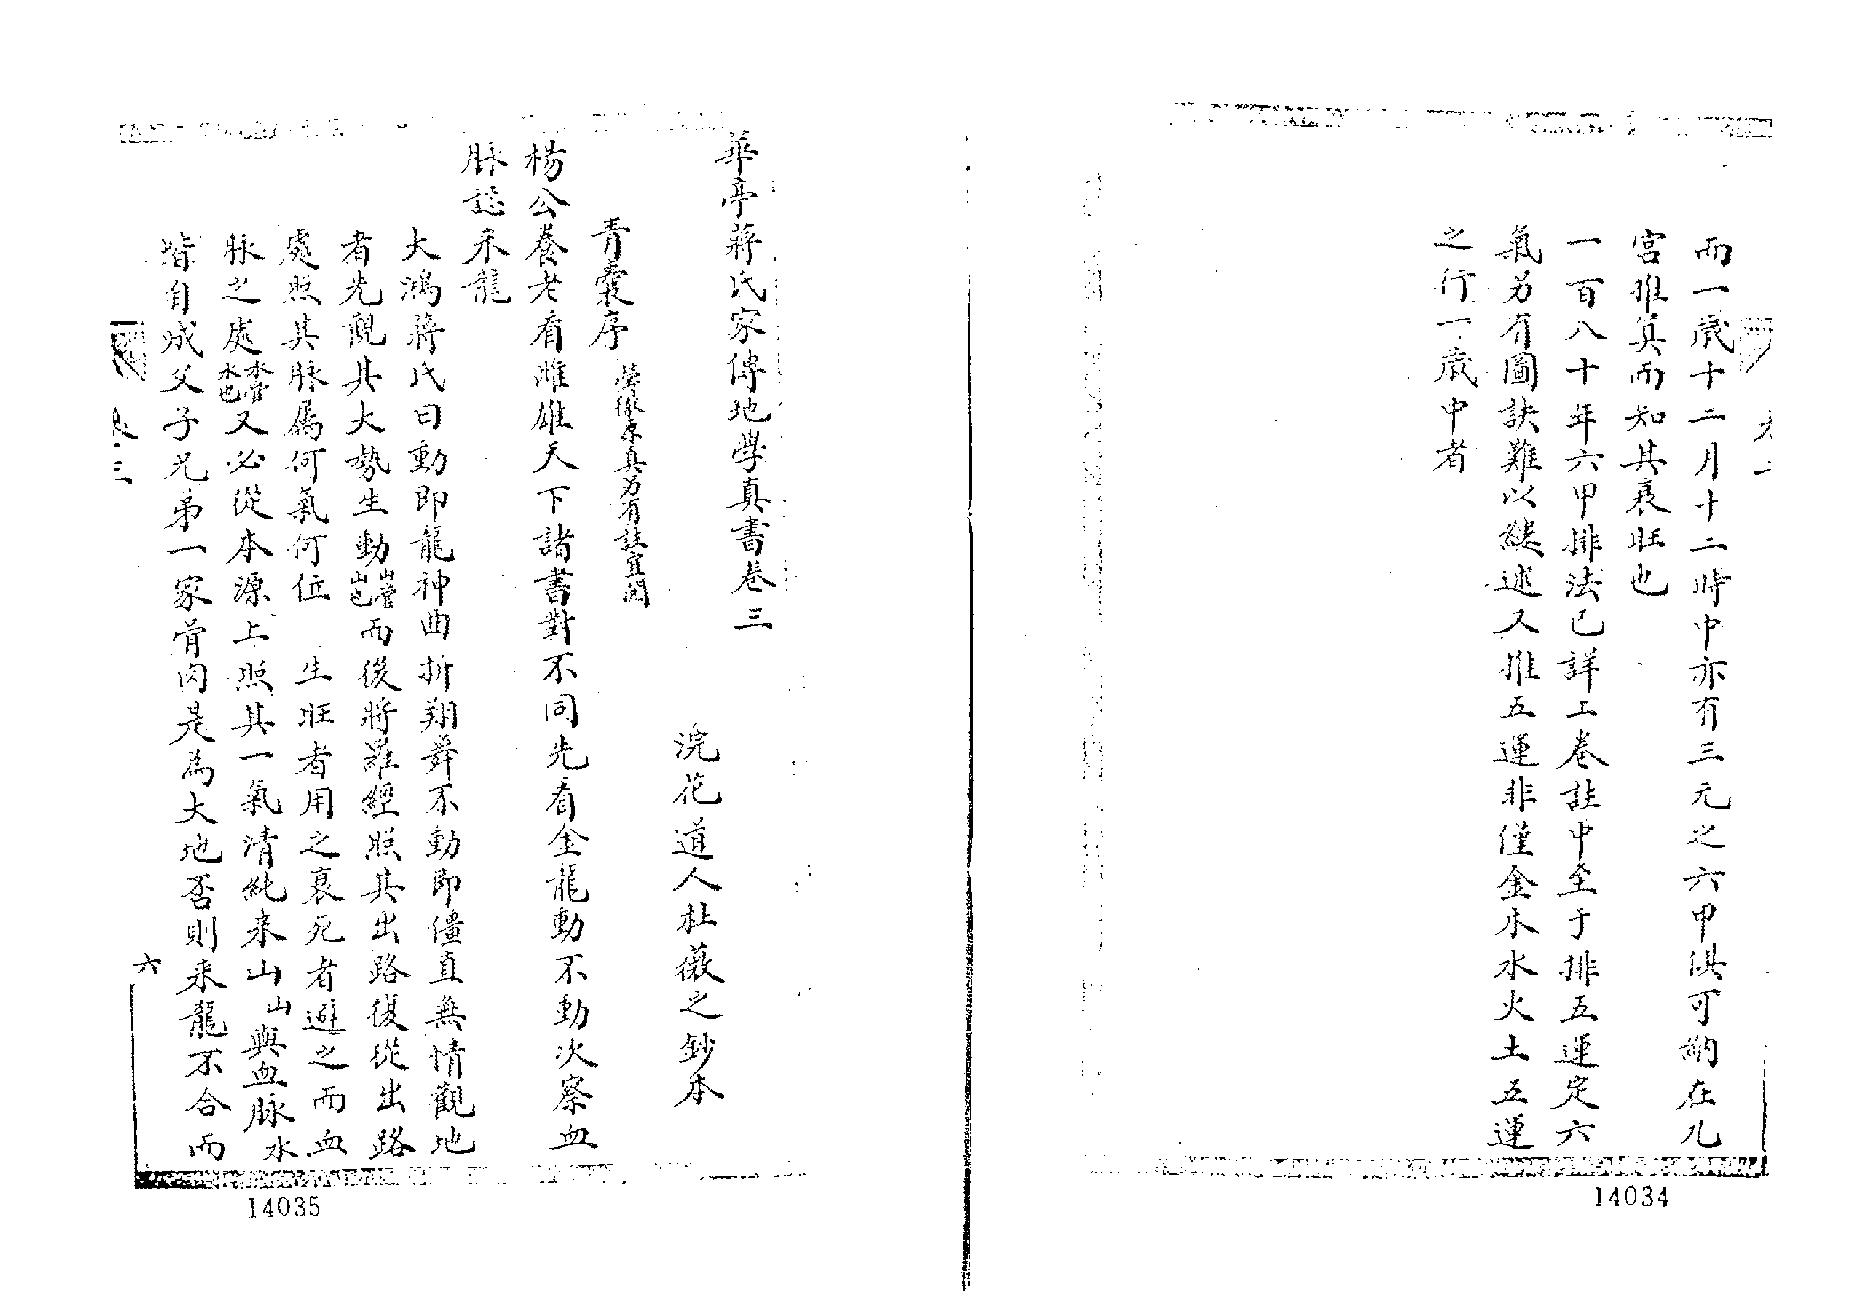 而一歲十二月十二時中亦有三元之六甲淇可納在九
宮推算而知其衰旺也
一百八十年六甲排法已詳上卷註中至于排五運定六
氣另有圖訣難以縷述又推五運非僅金木水火土五運
之行一歲中者
14034
華亭蔣氏家傳地學真書卷三
浣花道人杜薇之鈔本
青囊序
真另有註宜閱
楊公養老看雌雄天下諸書對不同先看金龍動不動次察血
脉認來龍
大鴻蔣氏曰動即龍神曲折翔舞不動即僵直無情觀地
者先觀其大勢生動山管山也而後將羅經照其出路復從出路
處照其脉屬何氣何位 生旺者用之衰死者避之而血
脉之處水管水也又必從本源上照其一氣清純来山山與血脉水
皆自成父子兄弟一家骨肉是為大地否則来龍不合而
卷三
六
14035